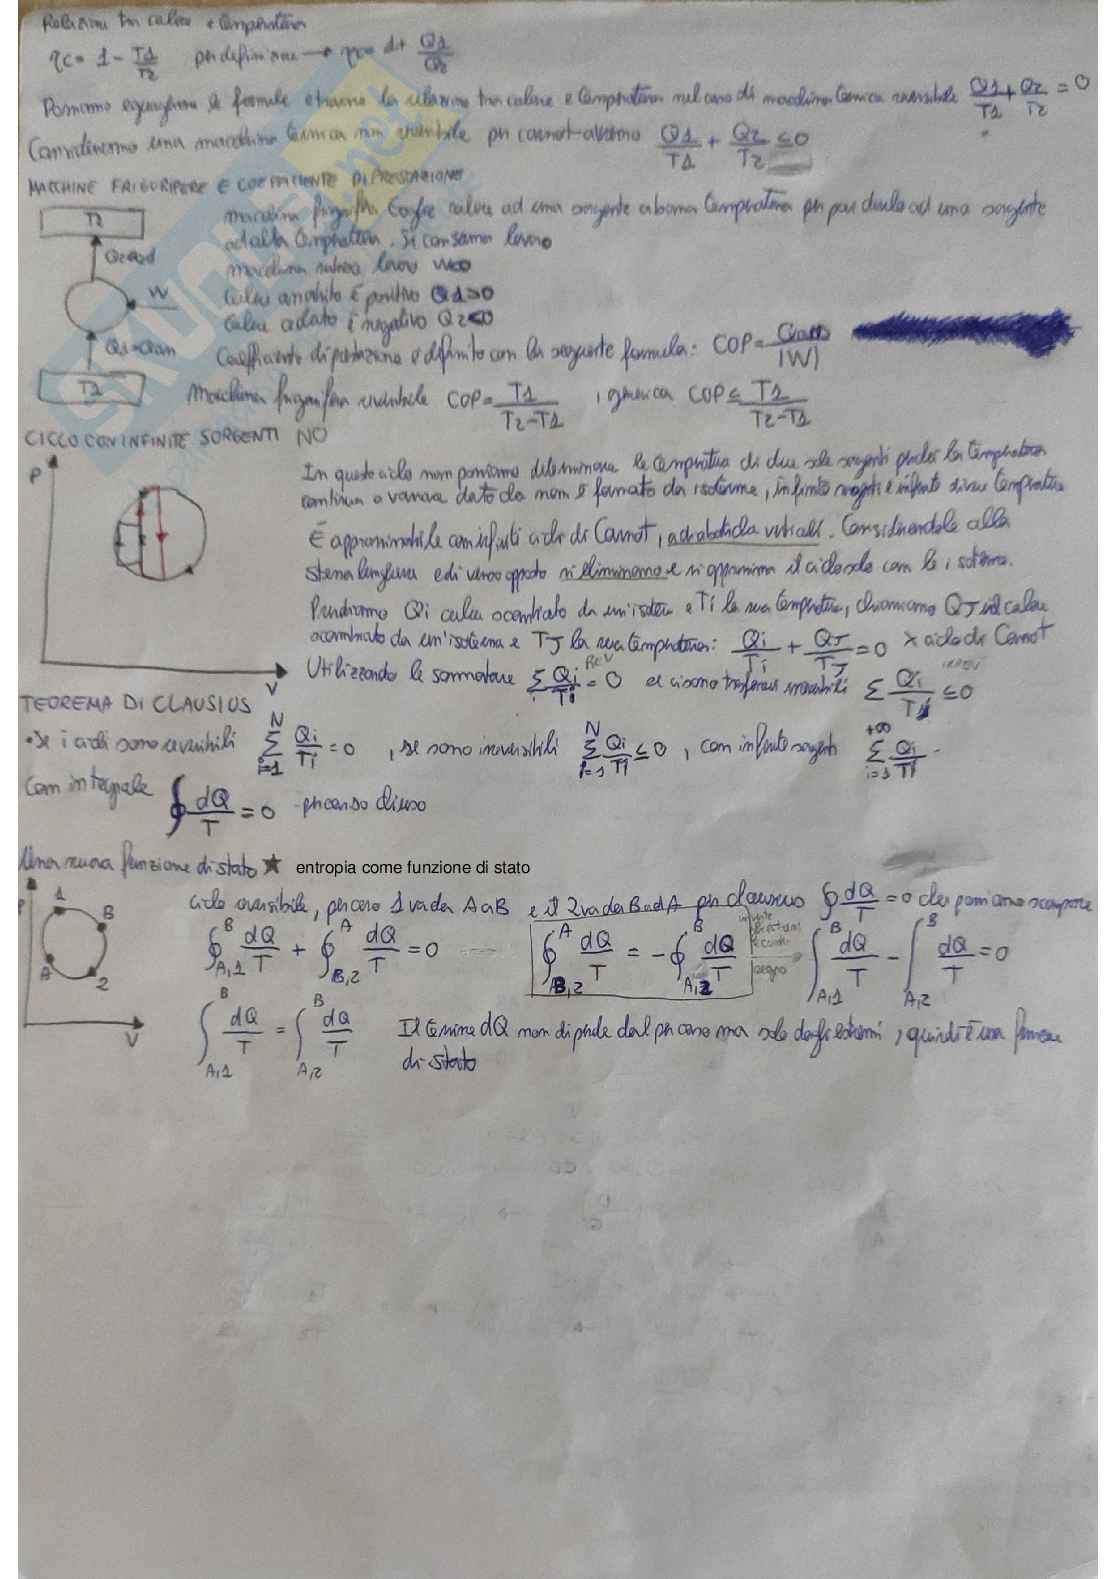 Relazioni tra calore e temperatura
ηc = 1 - T1/T2 per definizione → η = 1 + Q1/Q2
Possiamo eguagliare le formule e trarne la relazione tra calore e temperatura nel caso di macchina termica reversibile Q1/T1 + Q2/T2 = 0
Consideriamo una macchina termica non reversibile per carnot avremo Q1/T1 + Q2/T2 ≤ 0
MACCHINE FRIGORIFERE E COEFFICIENTE DI PRESTAZIONE
T2
macchina frigorifera toglie calore ad una sorgente a bassa temperatura per poi darlo ad una sorgente
ad alta temperatura. Si consuma lavoro
Q2=Qced
macchina subisce lavoro W<0
W
calore assorbito è positivo Q1>0
calore ceduto è negativo Q2<0
Q1=Qass
Coefficiente di prestazione è definito con la seguente formula: COP = Qass/|W|
T1
Macchina frigorifera reversibile COP = T1/T2-T1 , generica COP ≤ T1/T2-T1
CICLO CON INFINITE SORGENTI NO
P
In questo ciclo non possiamo determinare le temperature di due sole sorgenti perchè la temperatura
continua a variare dato che non è formato da isoterme, infinite sorgenti e infinite diverse temperature
È approssimabile con infiniti cicli di Carnot, adiabatiche verticali. Considerandole alla
stessa lunghezza e di verso opposto si eliminano e si approssima il ciclo solo con le isoterme.
Prendiamo Qi calore scambiato da un'isoterma e Ti la sua temperatura, chiamiamo QJ il calore
scambiato da un'isoterma e TJ la sua temperatura: Qi/Ti + QJ/TJ = 0 x ciclo di Carnot
V
Utilizzando le sommatorie Σi Qi/Ti = 0 REV e ci sono trasformaz irreversibili Σ Qi/Ti ≤ 0 IRREV
TEOREMA DI CLAUSIUS
• Se i cicli sono reversibili Σ i=1 N Qi/Ti = 0 , se sono irreversibili Σ i=1 N Qi/Ti ≤ 0 , con infinite sorgenti Σ i=1 +∞ Qi/Ti
Con integrale ∮ dQ/T = 0 percorso chiuso
Una nuova funzione di stato ★ entropia come funzione di stato
P
1
B
A
2
V
ciclo reversibile, percorso 1 va da A a B e il 2 va da B ad A per clausius ∮ dQ/T = 0 che possiamo scomporre
∮ A,1 B dQ/T + ∮ B,2 A dQ/T = 0 ∮ B,2 A dQ/T = - ∮ A,2 B dQ/T invertire gli estremi cambia segno ∫ A,1 B dQ/T - ∫ A,2 B dQ/T = 0
∫ A,1 B dQ/T = ∫ A,2 B dQ/T Il termine dQ non dipende dal percorso ma solo dagli estremi, quindi è una funzione
di stato